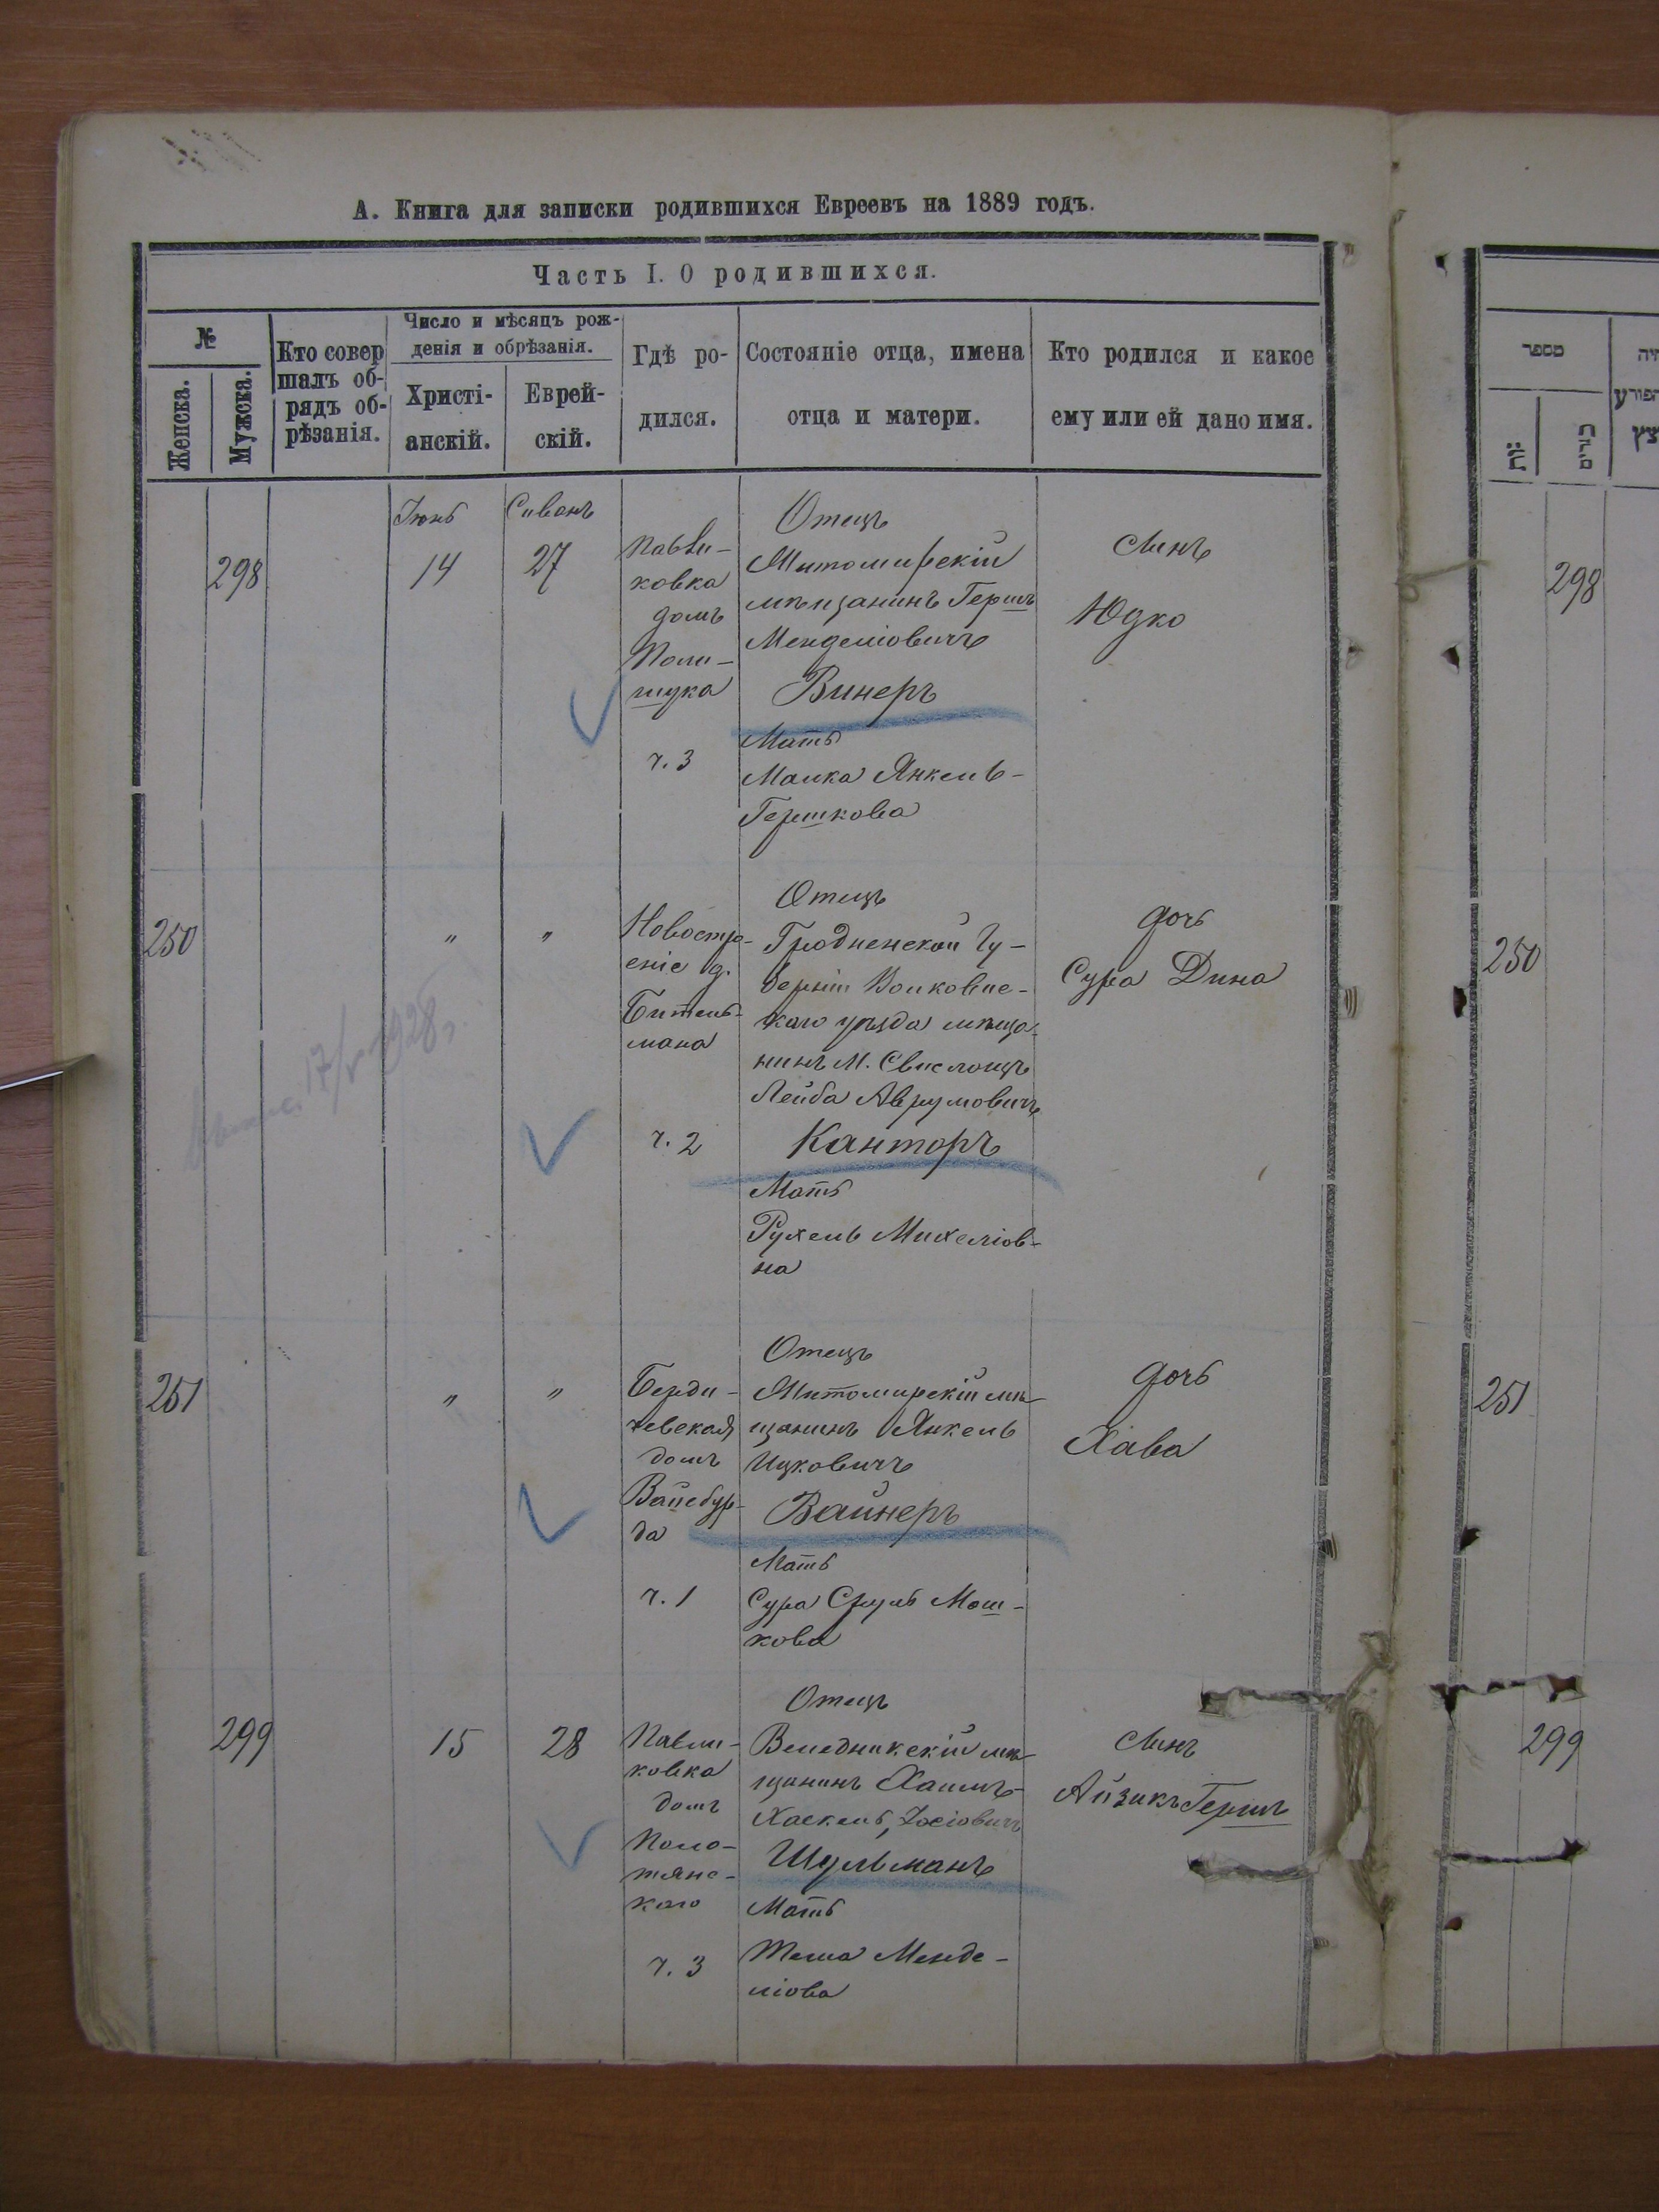 А. Книга для записки родившихся Евреевъ на 1889 годъ.
Часть I. О родившихся.
№
Женска.
Мужска.
Кто совер
шалъ об-
рядъ об-
рѣзанія.
Число и мѣсяцъ рож-
денія и обрѣзанія.
Христі-
анскій.
Еврей-
скій.
Гдѣ ро-
дился.
Состояніе отца, имена
отца и матери.
Кто родился и какое
ему или ей дано имя.
298
Іюнь
14
Сиванъ
27
Павли-
ковка
домъ
Поли-
щука
ч. 3
Отецъ
Житомирскій
мѣщанинъ Гершъ
Менделіовичъ
Винеръ
Мать
Малка Янкель-
Гершкова
Сынъ
Юдко
250
"
"
Новостро-
еніе д.
Битель-
мана
ч. 2
Отецъ
Гродненской Гу-
берніи Волковыс-
каго уѣзда мѣща-
нинъ М. Свислочь
Лейба Аврумовичъ
Канторъ
Мать
Рухель Михеліов-
на
дочь
Сура Дина
17/V 1928 г.
251
"
"
Берди-
чевская
домъ
Вайсбур-
да
ч. 1
Отецъ
Житомирскій мѣ-
щанинъ Янкель
Ицковичъ
Вайнеръ
Мать
Сура Сруль Мош-
кова
дочь
Хава
299
15
28
Павли-
ковка
домъ
Поло-
тянс-
каго
ч. 3
Отецъ
Веледникскій мѣ-
щанинъ Хаимъ-
Хаскель, Іосіовичъ
Шульманъ
Мать
Тема Менде-
ліова
Сынъ
Айзикъ Гершъ
מספר
זכרים
298
250
251
299